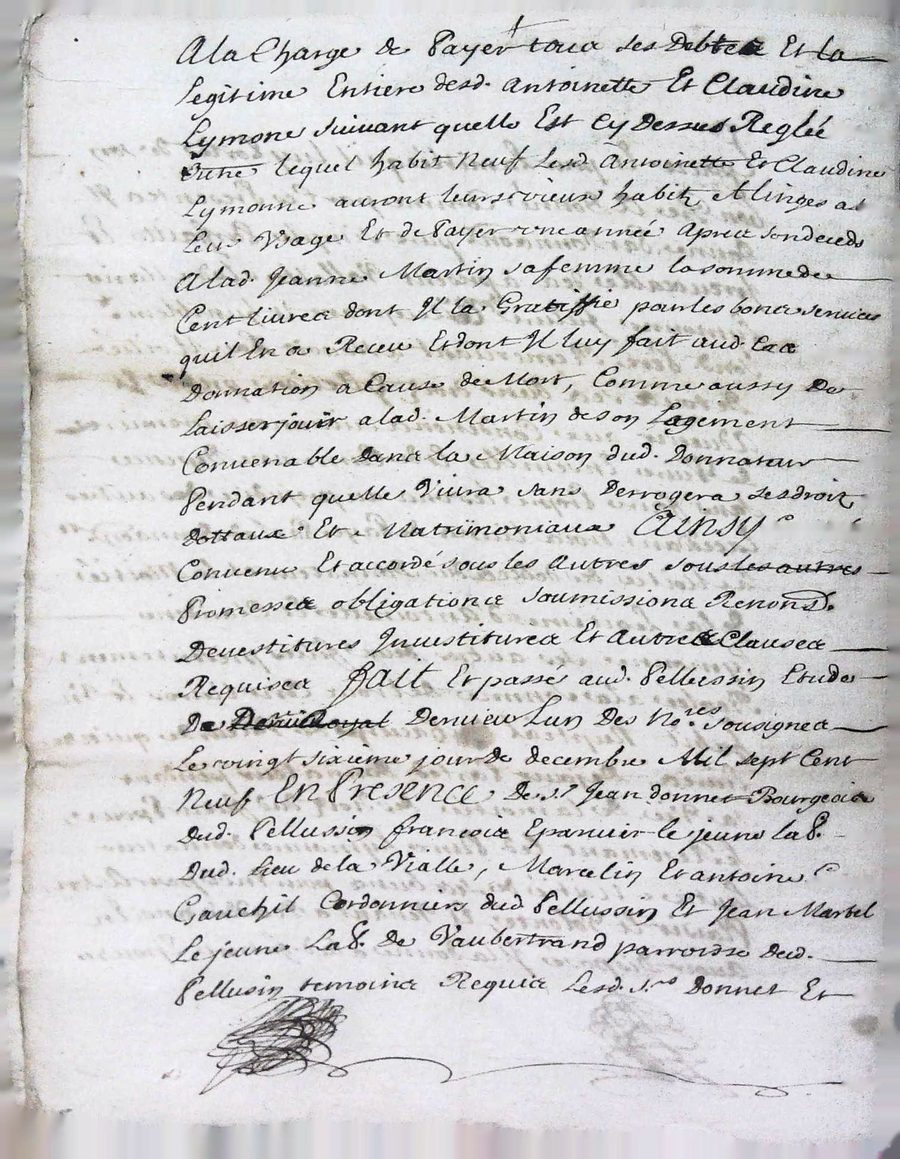 A la Charge de Payer tous ses Debtes Et la
Legitime Entiere desd. Antoinette Et Claudine
Lymone suivant quelle Est Cy Dessus Reglée
outre lequel habit Neuf Lesd. Antoinette Et Claudine
Lymonne auront leurs vieux habitz, et linges a
leur Usage Et de Payer une année Apres son deceds
A lad. Jeanne Martin sa femme la somme de
Cent livres dont Il la Gratiffie pour les bons services
quil En a Receu Et dont Il luy fait aud. Cas
Donnation a Cause de Mort, Comme aussy De
Laisser jouir a lad. Martin de son Logement
Convenable Dans la Maison dud. Donnateur
Pendant quelle Vivra sans Derroger a ses droitz
Dottaux Et Matrimoniaux Ainsy
Convenu Et accordé sous les Autres sous les autres
Promesses obligations soumissions Renons.
Devestitures Investitures Et Autres Clauses
Requises fait Et passé aud. Pellussin Etude
De Royal Dervieu Lun Des No.res sousignes
Le vingt sixieme jour de decembre Mil sept Cent
Neuf En Presence De Sr. Jean Donnet Bourgeois
Dud. Pellussin francois Eparvier le jeune lab.
Dud. Lieu de la Vialle, Marcelin Et antoine
Gauchil Cordonniers dud Pellussin Et Jean Martel
Le jeune Lab. De Vaubertrand parroisse Dud.
Pellusin temoins Requis Lesd. S.rs Donnet Et